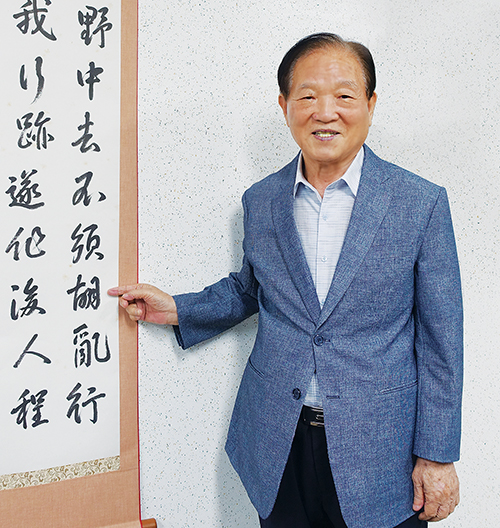 野中去不須胡亂行
我行跡遂作後人程